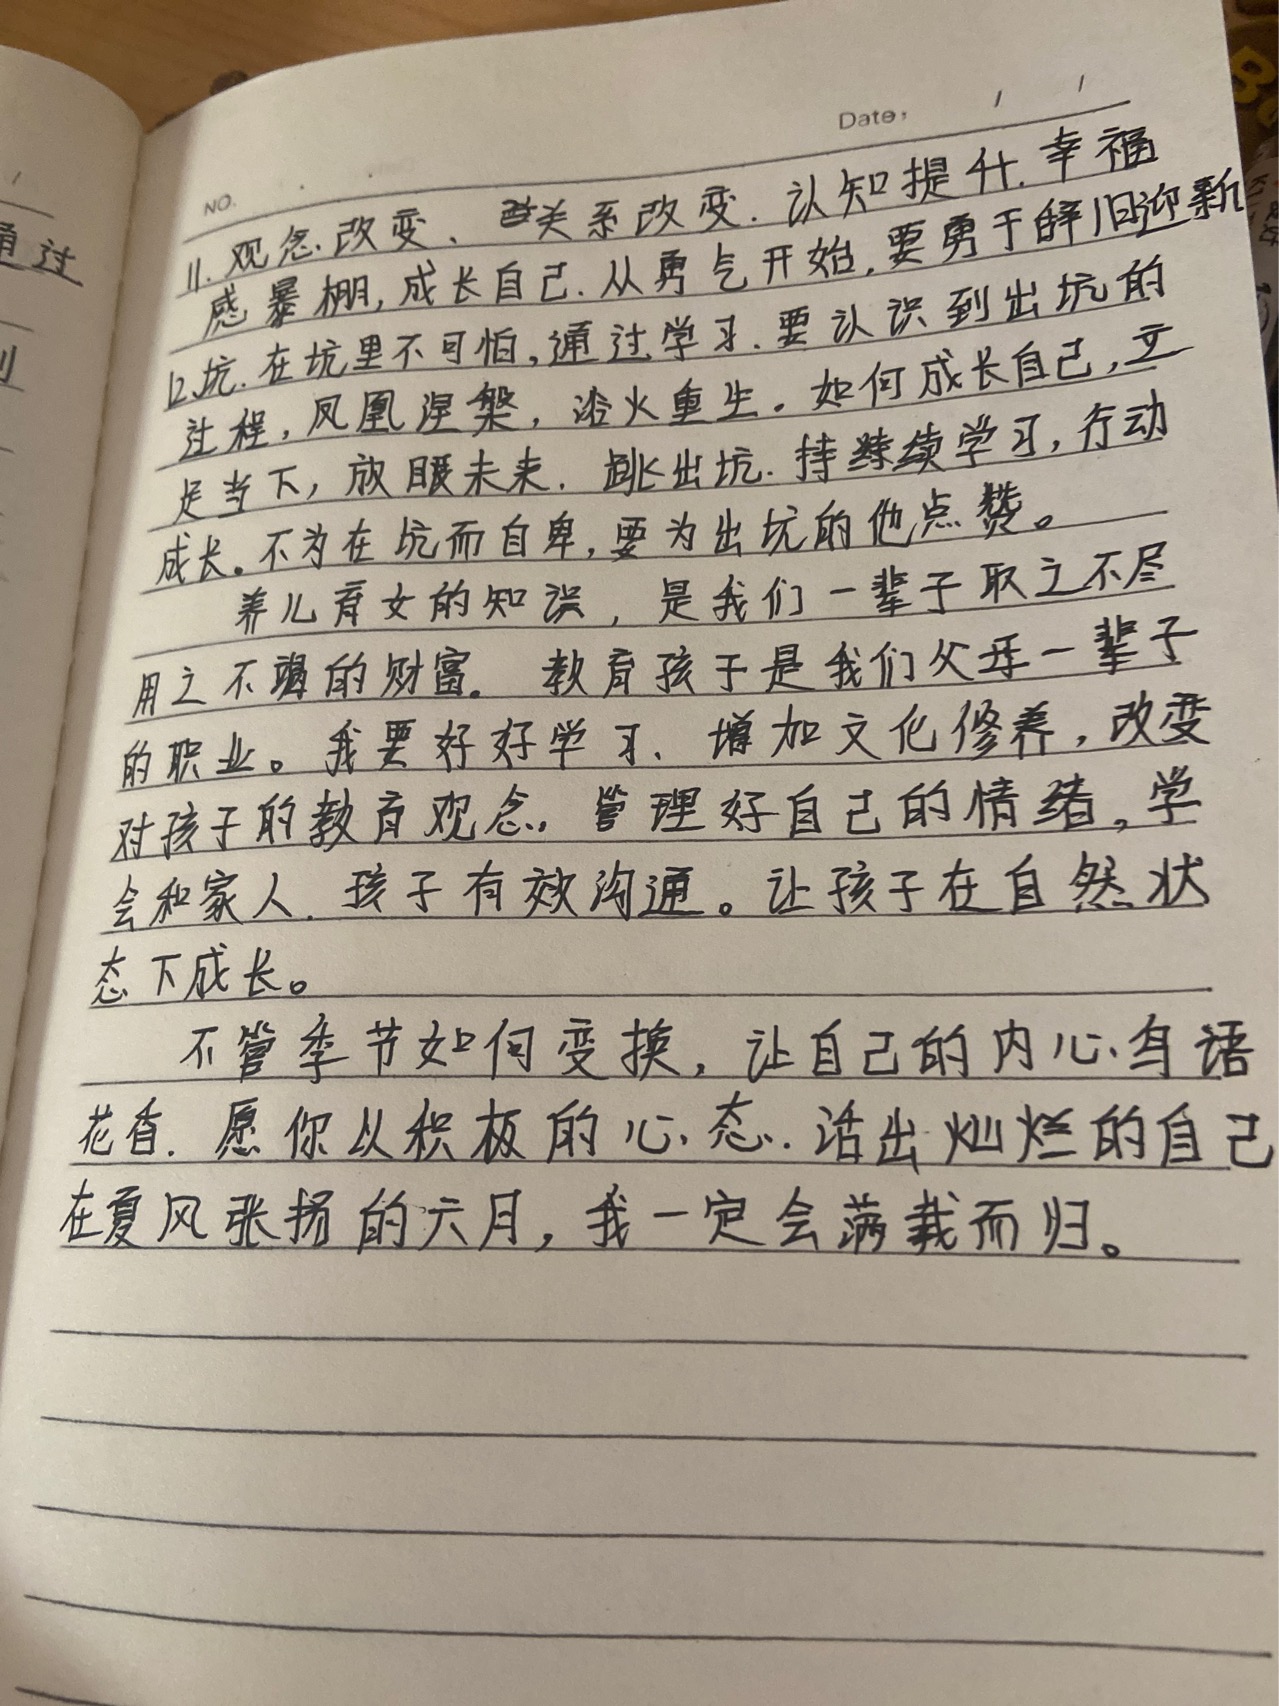 Date:
NO.
11. 观念改变、关系改变.认知提升.幸福
感暴棚,成长自己.从勇气开始,要勇于辞旧迎新
12.坑.在坑里不可怕,通过学习.要认识到出坑的
过程,凤凰涅槃,浴火重生。如何成长自己,立
足当下,放眼未来.跳出坑.持续学习,行动
成长。不为在坑而自卑,要为出坑的他点赞。
养儿育女的知识,是我们一辈子取之不尽
用之不竭的财富。教育孩子是我们父母一辈子
的职业。我要好好学习、增加文化修养,改变
对孩子的教育观念.管理好自己的情绪。学
会和家人.孩子有效沟通。让孩子在自然状
态下成长。
不管季节如何变换,让自己的内心鸟语
花香.愿你以积极的心态.活出灿烂的自己
在夏风张扬的六月,我一定会满载而归。
通过